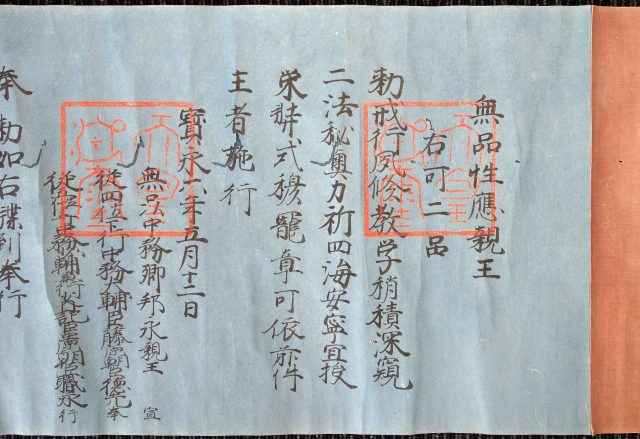 無品性應親王
右可二品
勅戒行夙修教学稍積深窺
二法秘奥力祈四海安寧宜授
栄班式穆寵章可依前件
主者施行
寶永六年五月十二日
無品中務卿邦永親王 宣
從四位下行中務大輔臣藤原朝臣 奉
從 中務 輔 朝臣 行
奉勅如右牒到奉行